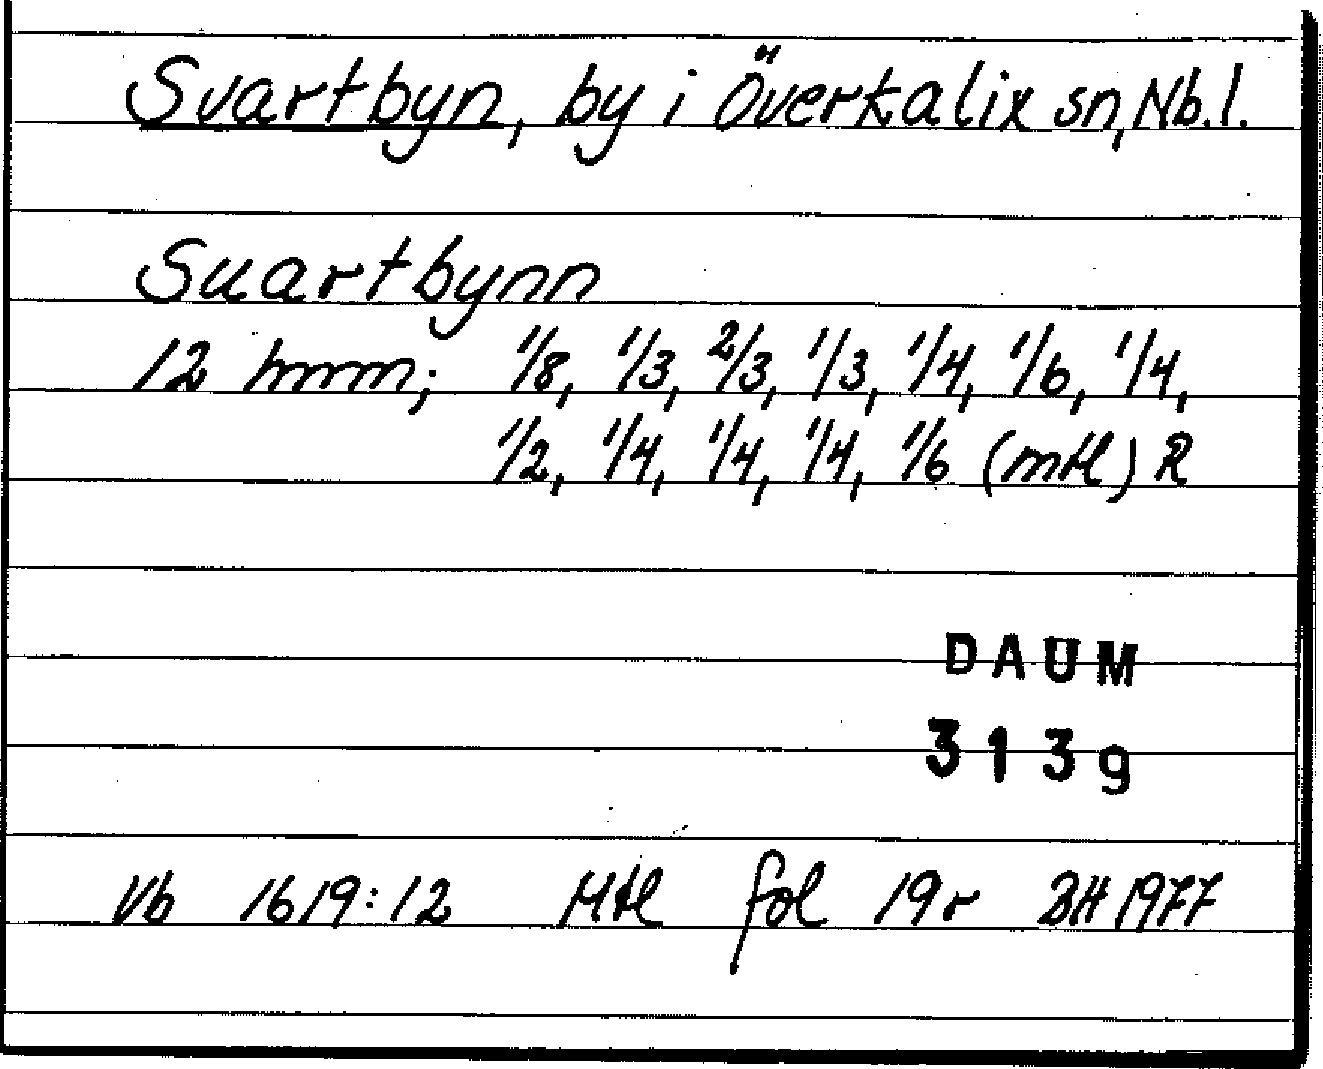 Svartbyn, by i Överkalix sn, Nb.l.
Suartbynn
12 hmm; 1/8, 1/3, 2/3, 1/3, 1/4, 1/6, 1/4,
1/2, 1/4, 1/4, 1/4, 1/6 (mtl) R
DAUM
3139
Vb 1619:12 Mtl fol 19r BH 1977